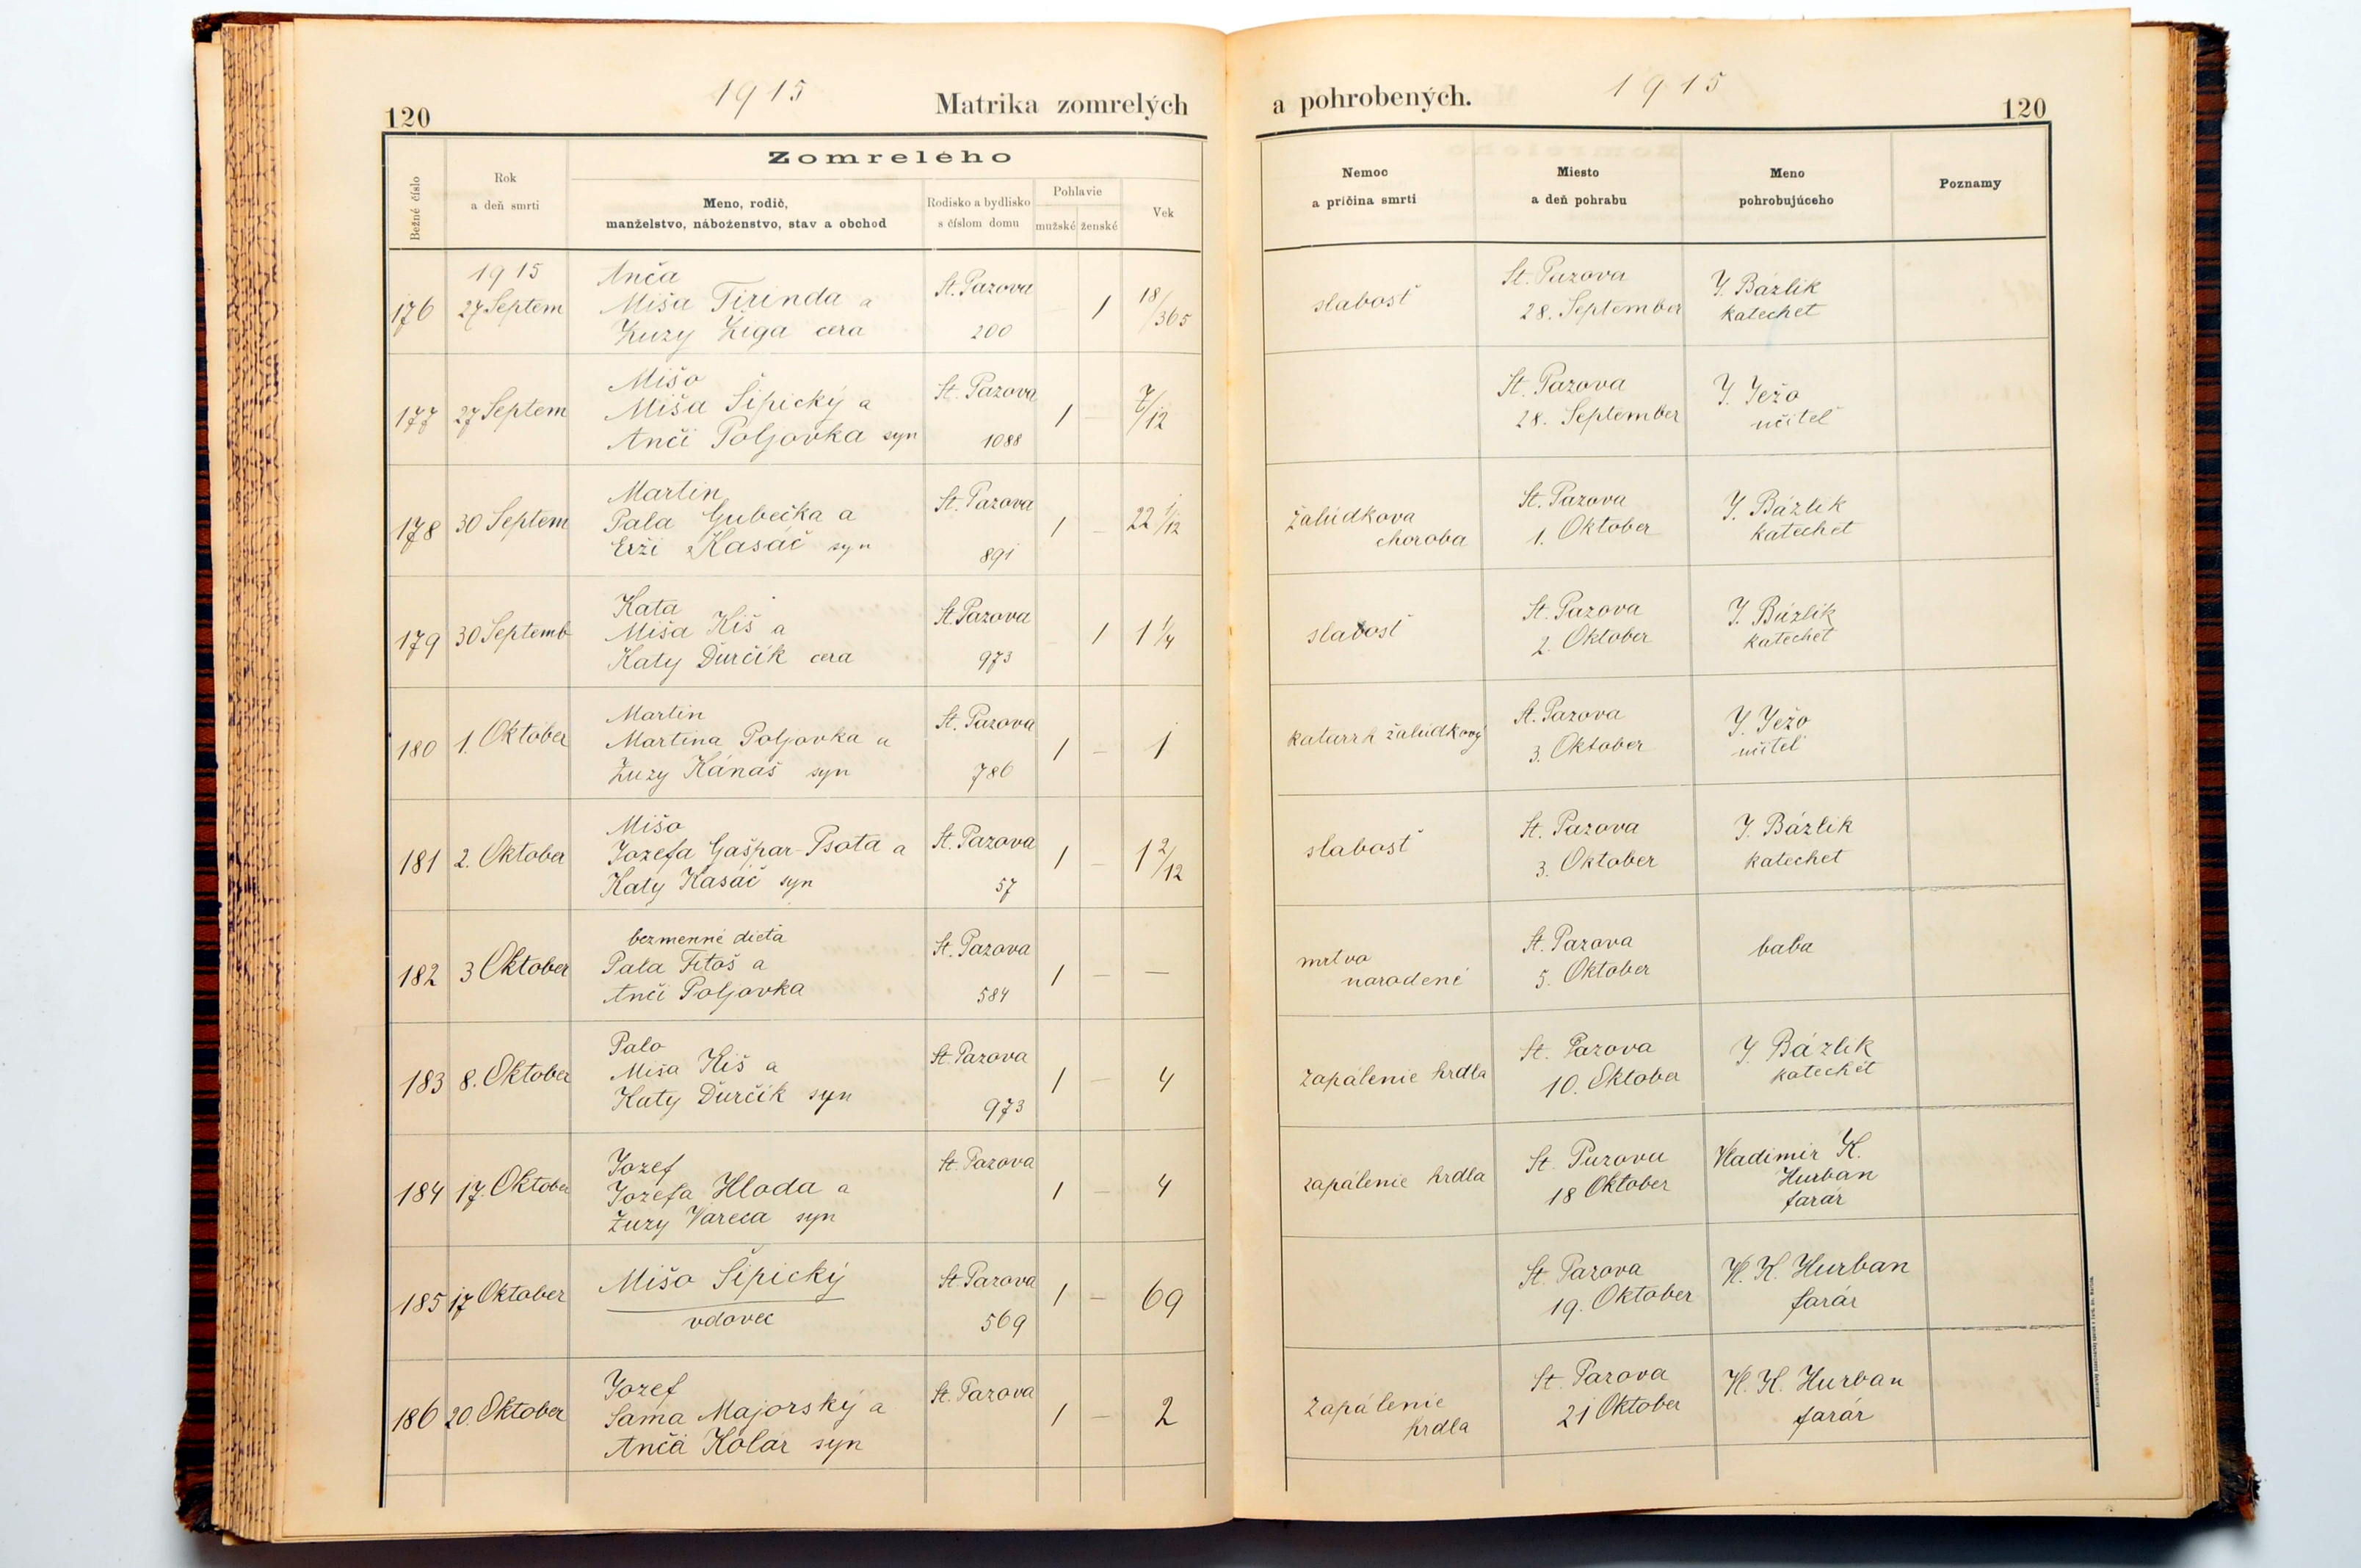 1915
120
Matrika zomrelých
Bežné číslo
Rok
a deň smrti
Zomrelého
Meno, rodič,
manželstvo, náboženstvo, stav a obchod
Rodisko a bydlisko
s číslom domu
Pohlavie
mužské
ženské
Vek
176
1915
27 Septem
Anča
Miša Tirinda a
Zuzy Žiga cera
St. Pazova
200
— 1
18/365
177
27 Septem
Mišo
Miša Šipický a
Anči Poljovka syn
St. Pazova
1088
1 —
7/12
178
30 Septem
Martin
Pala Gubečka a
Erži Kasáč syn
St. Pazova
891
1 —
22 1/12
179
30 Septemb
Kata
Miša Kiš a
Katy Ďurčík cera
St. Pazova
973
— 1
1 1/4
180
1. Október
Martin
Martina Poljovka a
Zuzy Kánaš syn
St. Pazova
786
1 —
1
181
2. Oktober
Mišo
Jozefa Gašpar-Psota a
Katy Kasáč syn
St. Pazova
57
1 —
1 2/12
182
3 Oktober
bezmenné dieťa
Pala Fitoš a
Anči Poljovka
St. Pazova
584
1 —
—
183
8. Oktober
Palo
Miša Kiš a
Katy Ďurčík syn
St. Pazova
973
1 —
4
184
17. Oktober
Jozef
Jozefa Hloda a
Zuzy Vareca syn
St. Pazova
1 —
4
185
17 Oktober
Mišo Šipický
vdovec
St. Pazova
569
1 —
69
186
20. Oktober
Jozef
Sama Majorský a
Anča Kolár syn
St. Pazova
1 —
2
a pohrobených.
1915
120
Nemoc
a príčina smrti
Miesto
a deň pohrabu
Meno
pohrobujúceho
Poznamy
slabosť
St. Pazova
28. September
J. Bázlik
katechet
St. Pazova
28. September
J. Ježo
učiteľ
žalúdkova
choroba
St. Pazova
1. Oktober
J. Bázlik
katechet
slabosť
St. Pazova
2. Oktober
J. Bázlik
katechet
katarrh žalúdkový
St. Pazova
3. Oktober
J. Ježo
učiteľ
slabosť
St. Pazova
3. Oktober
J. Bázlik
katechet
mrtvo
narodené
St. Pazova
5. Oktober
baba
zapálenie hrdla
St. Pazova
10. Oktober
J. Bázlik
katechét
zapálenie hrdla
St. Pazova
18 Oktober
Vladimír K.
Hurban
farár
St. Pazova
19. Oktober
V. K. Hurban
farár
zapálenie
hrdla
St. Pazova
21 Oktober
V. K. Hurban
farár